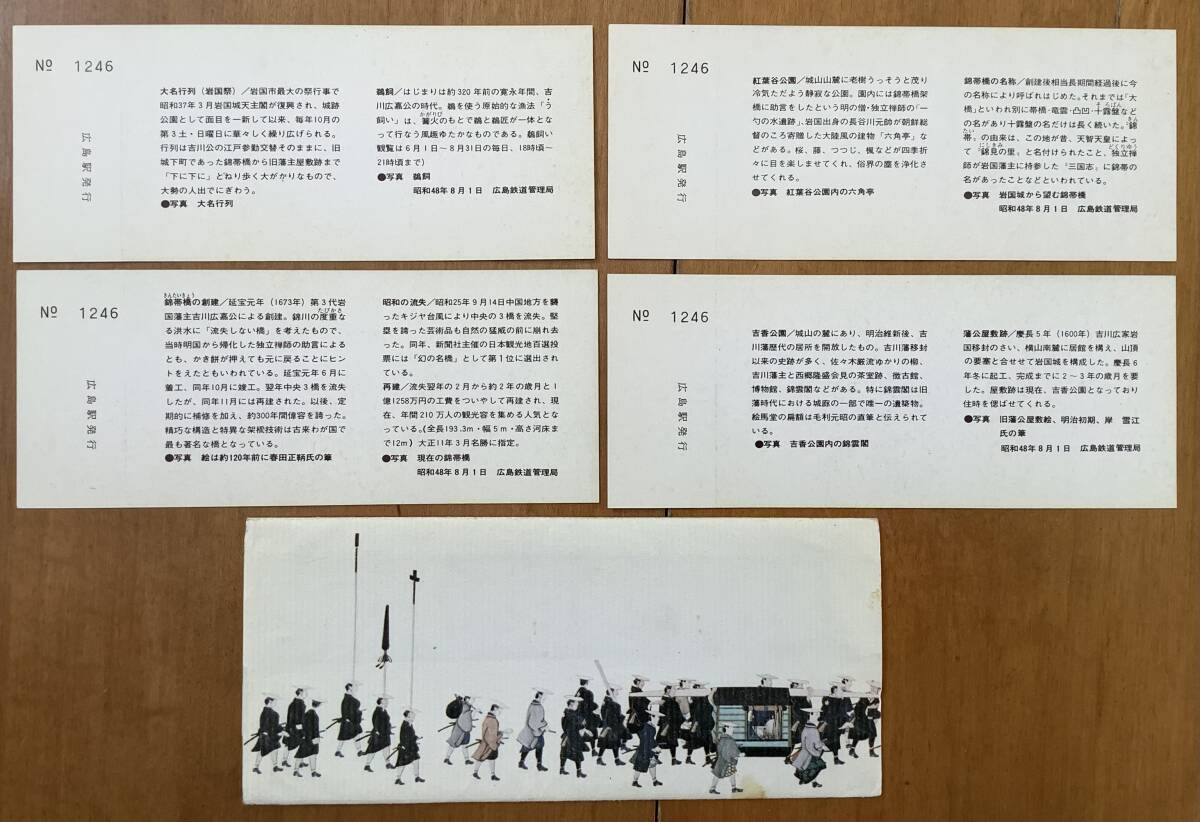 No 1246
広島駅発行
大名行列(岩国祭)/岩国市最大の祭行事で
昭和37年3月岩国城天主閣が復興され、城跡
公園として面目を一新して以来、毎年10月の
第3土・日曜日に華々しく繰り広げられる。
行列は吉川公の江戸参勤交替そのままに、旧
城下町であった錦帯橋から旧藩主屋敷跡まで
「下に下に」とねり歩く大がかりなもので、
大勢の人出でにぎわう。
●写真 大名行列
鵜飼/はじまりは約320年前の寛永年間、吉
川広嘉公の時代。鵜を使う原始的な漁法「う
飼い」は、篝火のもとで鵜と鵜匠が一体とな
かがりび
って行なう風趣ゆたかなものである。鵜飼い
観覧は6月1日~8月31日の毎日、18時頃~
21時頃まで)
●写真 鵜飼
昭和48年8月1日 広島鉄道管理局
No 1246
広島駅発行
紅葉谷公園/城山山麓に老樹うっそうと茂り
冷気ただよう静寂な公園。園内には錦帯橋架
橋に助言をしたという明の僧・独立禅師の「一
勺の水遺跡」、岩国出身の長谷川元帥が朝鮮総
督のころ寄贈した大陸風の建物「六角亭」な
どがある。桜、藤、つつじ、楓などが四季折
々に目を楽しませてくれ、俗界の塵を浄化さ
せてくれる。
●写真 紅葉谷公園内の六角亭
錦帯橋の名称/創建後相当長期間経過後に今
の名称により呼ばれはじめた。それまでは「大
橋」といわれ別に帯橋・竜雲・凸凹・十露盤など
そろばん
の名があり十露盤の名だけは長く続いた。"錦
きん
帯"の由来は、この地が昔、天智天皇によっ
たい
て"錦見の里"と名付けられたこと、独立禅
にしきみ
どくりゆう
師が岩国藩主に持参した"三国志"に錦帯の
名があったことなどといわれている。
●写真 岩国城から望む錦帯橋
昭和48年8月1日 広島鉄道管理局
No 1246
広島駅発行
きんたいきょう
錦帯橋の創建/延宝元年(1673年)第3代岩
国藩主吉川広嘉公による創建。錦川の度重な
たびかさ
る洪水に「流失しない橋」を考えたもので、
当時明国から帰化した独立禅師の助言による
とも、かき餅が押えても元に戻ることにヒン
トをえたともいわれている。延宝元年6月に
着工、同年10月に竣工。翌年中央3橋を流失
したが、同年11月には再建された。以後、定
期的に補修を加え、約300年間偉容を誇った。
精巧な構造と特異な架橋技術は古来わが国で
最も著名な橋となっている。
●写真 絵は約120年前に春田正鞆氏の筆
昭和の流失/昭和25年9月14日中国地方を襲
ったキジヤ台風により中央の3橋を流失。堅
塁を誇った芸術品も自然の猛威の前に崩れ去
った。同年、新聞社主催の日本観光地百選投
票には「幻の名橋」として第1位に選出され
ている。
再建/流失翌年の2月から約2年の歳月と1
億1258万円の工費をついやして再建され、現
在、年間210万人の観光容を集める人気とな
っている。(全長193.3m・幅5m・高さ河床ま
で12m)大正11年3月名勝に指定。
●写真 現在の錦帯橋
昭和48年8月1日 広島鉄道管理局
No 1246
広島駅発行
吉香公園/城山の麓にあり、明治維新後、吉
川藩歴代の居所を開放したもの。吉川藩移封
以来の史跡が多く、佐々木厳流ゆかりの柳、
吉川藩主と西郷隆盛会見の茶室跡、徴古館、
博物館、錦雲閣などがある。特に錦雲閣は旧
藩時代における城庭の一部で唯一の遺築物。
絵馬堂の扁額は毛利元昭の直筆と伝えられて
いる。
●写真 吉香公園内の錦雲閣
藩公屋敷跡/慶長5年(1600年)吉川広家岩
国移封のさい、横山南麓に居館を構え、山頂
の要塞と合せせて岩国城を構成した。慶長6
年冬に起工、完成までに2~3年の歳月を要
した。屋敷跡は現在、吉香公園となっており
往時を偲ばせてくれる。
●写真 旧藩公屋敷絵、明治初期、岸 雪江
氏の筆
昭和48年8月1日 広島鉄道管理局